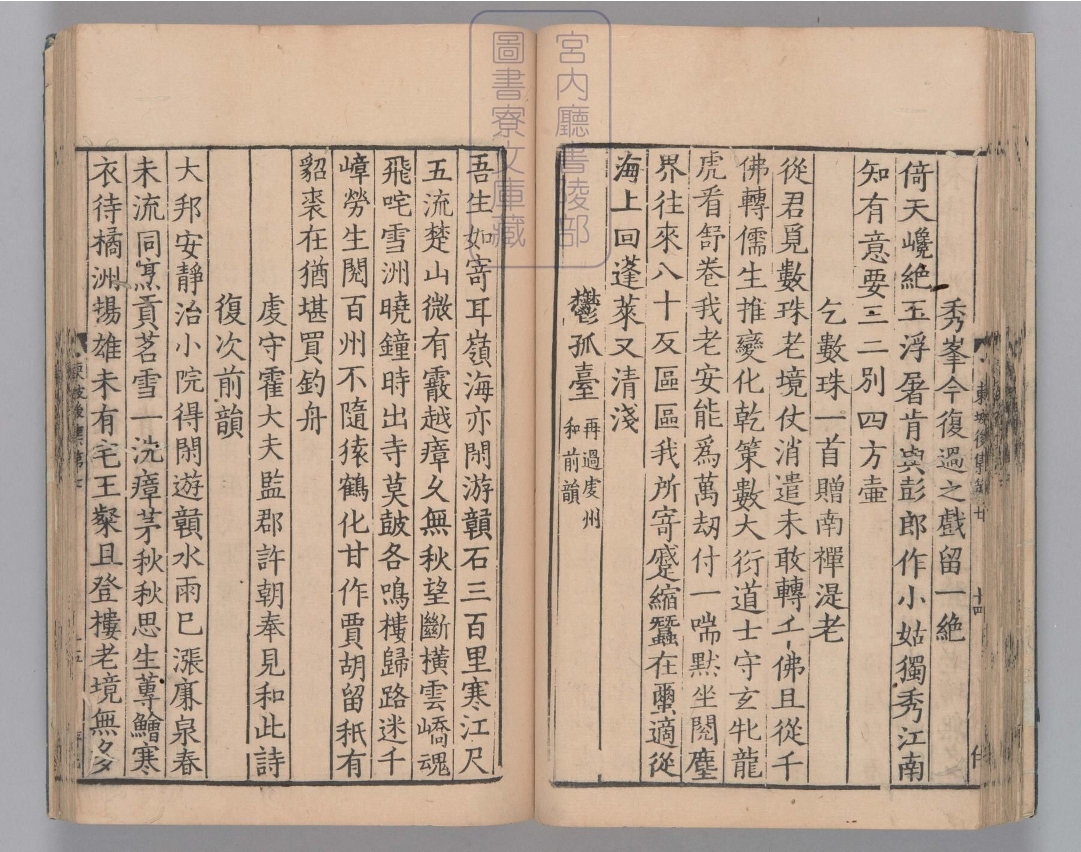 秀峯今復過之戲留一絶
倚天巉絶玉浮屠肯與彭郎作小姑獨秀江南
知有意要三二別四方壺
乞數珠一首贈南禪湜老
從君覓數珠老境仗消遣未敢轉千佛且從千
佛轉儒生推變化乾策數大衍道士守玄牝龍
虎看舒卷我老安能爲萬刼付一喘默坐閱塵
界往來八十反區區我所寄蹙縮蠶在繭適從
海上回蓬萊又清淺
鬱孤臺
再過虔州
和前韻
吾生如寄耳嶺海亦閑游贛石三百里寒江尺
五流楚山微有霰越瘴久無秋望斷橫雲嶠魂
飛咤雪洲曉鐘時出寺莫鼓各鳴樓歸路迷千
嶂勞生閱百州不隨猿鶴化甘作賈胡留秖有
貂裘在猶堪買釣舟
虔守霍大夫監郡許朝奉見和此詩
復次前韻
大邦安靜治小院得閑遊贛水雨已漲廉泉春
未流同烹貢茗雪一洗瘴茅秋秋思生蓴鱠寒
衣待橘洲揚雄未有宅王粲且登樓老境無多
東坡後集第七
十五
宮内廳書陵部
圖書寮文庫藏